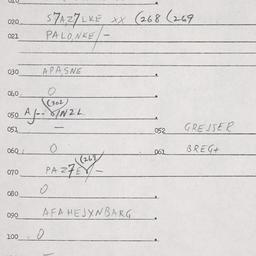 010
020 S7A,Z7LKE xx (268 (269
021 PALO,NKE/-
030 APA,SNE
040 0
(302)
050 A
051 - 052 GRESSER
060 0 061 BREG+
(269
070 PAZ7E/-
080 0
090 AFAHEJXNBARG
100 0